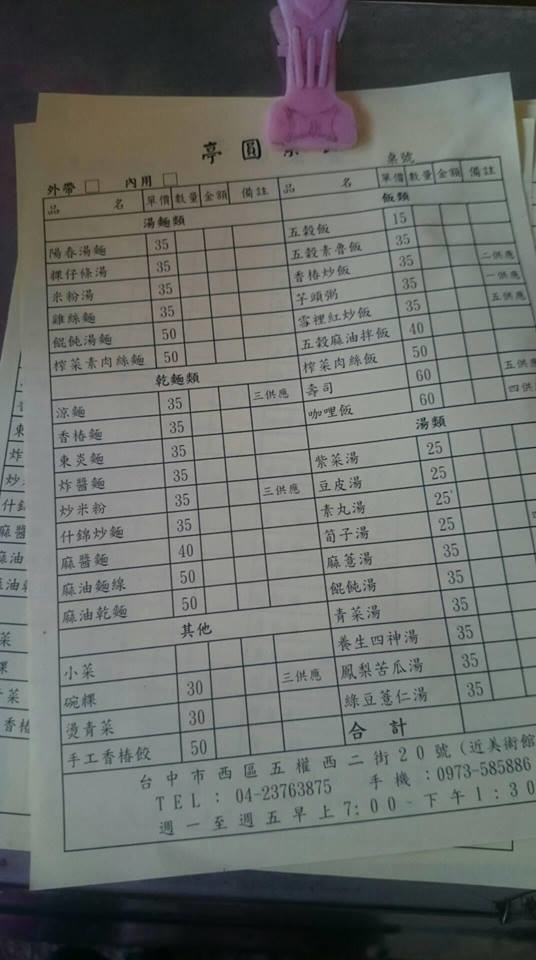 亭圓
外帶 □ 內用 □
桌號
品名 單價 數量 金額 備註
湯麵類
陽春湯麵 35
粿仔條湯 35
米粉湯 35
雞絲麵 35
餛飩湯麵 50
榨菜素肉絲麵 50
乾麵類
涼麵 35 三供應
香椿麵 35
東炎麵 35
炸醬麵 35
炒米粉 35 三供應
什錦炒麵 35
麻醬麵 40
麻油麵線 50
麻油乾麵 50
其他
小菜
碗粿 30 三供應
燙青菜 30
手工香椿餃 50
品名 單價 數量 金額 備註
飯類
五穀飯 15
五穀素魯飯 35
香椿炒飯 35 二供應
芋頭粥 35 一供應
雪裡紅炒飯 35 五供應
五穀麻油拌飯 40
榨菜肉絲飯 50
壽司 60 五供應
咖哩飯 60 四供應
湯類
紫菜湯 25
豆皮湯 25
素丸湯 25
筍子湯 25
麻薏湯 35
餛飩湯 35
青菜湯 35
養生四神湯 35
鳳梨苦瓜湯 35
綠豆薏仁湯 35
合計
台中市西區五權西二街20號(近美術館
TEL: 04-23763875 手機:0973-585886
週一至週五早上7:00-下午1:30